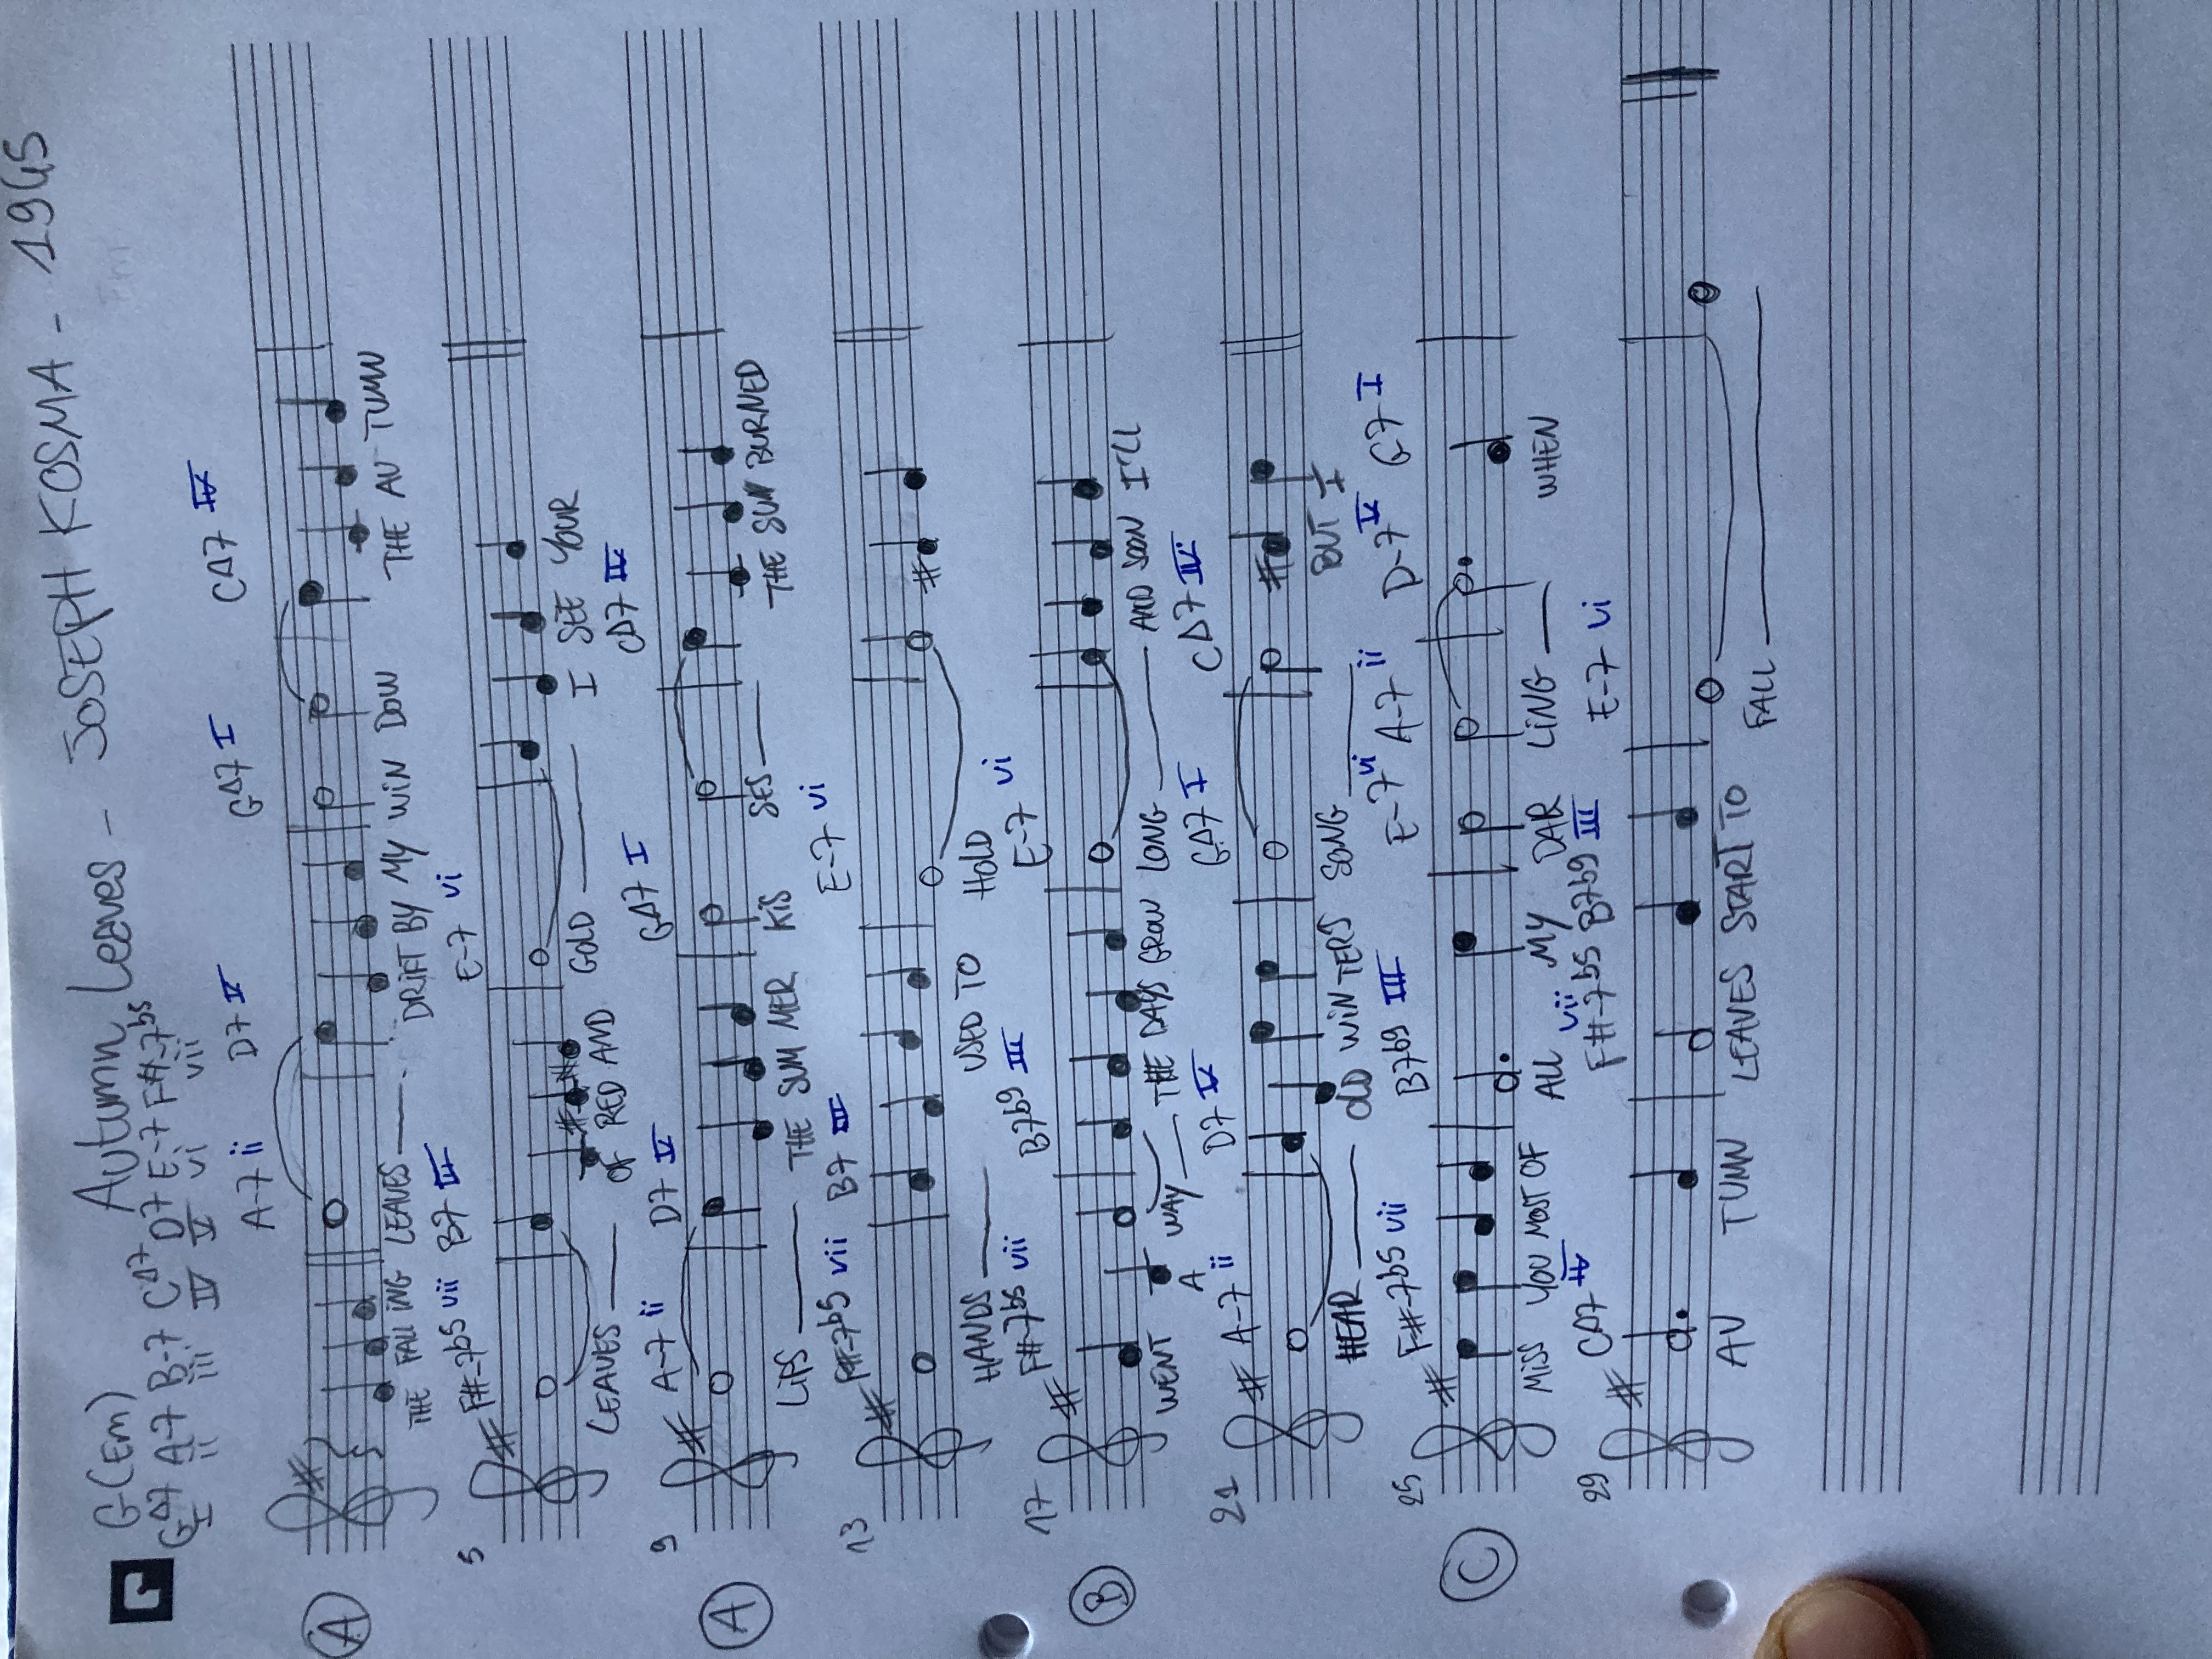 G(Em) Autumn Leaves - JOSEPH KOSMA - 1945
G△7 A-7 B-7 C△7 D7 E-7 F#-7b5
I ii iii IV V vi vii
A-7 ii D7 V G△7 I C△7 IV
A
THE FALL ING LEAVES DRIFT BY MY WIN DOW THE AU TUMN
5 F#-7b5 vii B7 III E-7 vi
LEAVES OF RED AND GOLD I SEE YOUR
9 A-7 ii D7 V G△7 I C△7 IV
A
LIPS THE SUM MER KIS SES THE SUN BURNED
13 F#-7b5 vii B7 III E-7 vi
HANDS USED TO HOLD
17 F#-7b5 vii B7b9 III E-7 vi
B
WENT A WAY THE DAYS GROW LONG AND SOON I'LL
21 A-7 ii D7 V G△7 I C△7 IV
HEAR OLD WINTERS SONG BUT I
25 F#-7b5 vii B7b9 III E-7 vi A-7 ii D-7 V G7 I
C
MISS YOU MOST OF ALL MY DAR LING WHEN
29 C△7 IV F#-7b5 vii B7b9 III E-7 vi
AU TUMN LEAVES START TO FALL